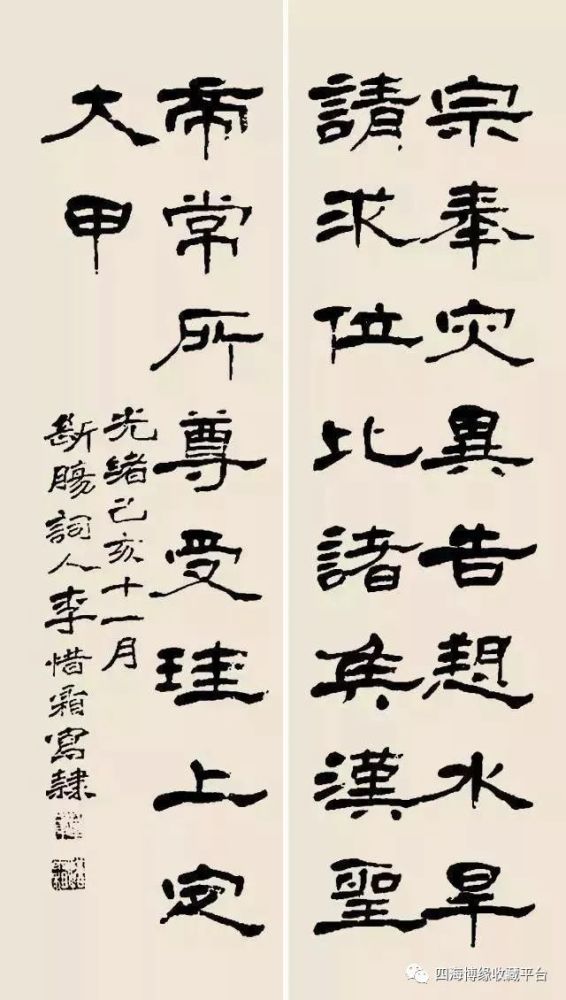 宗奉灾異告愬水旱
請求位比諸矦漢聖
帝常所尊受珪上定
大甲
光緒己亥十一月
斷腸詞人李惜霜寫隸
四海博缘收藏平台